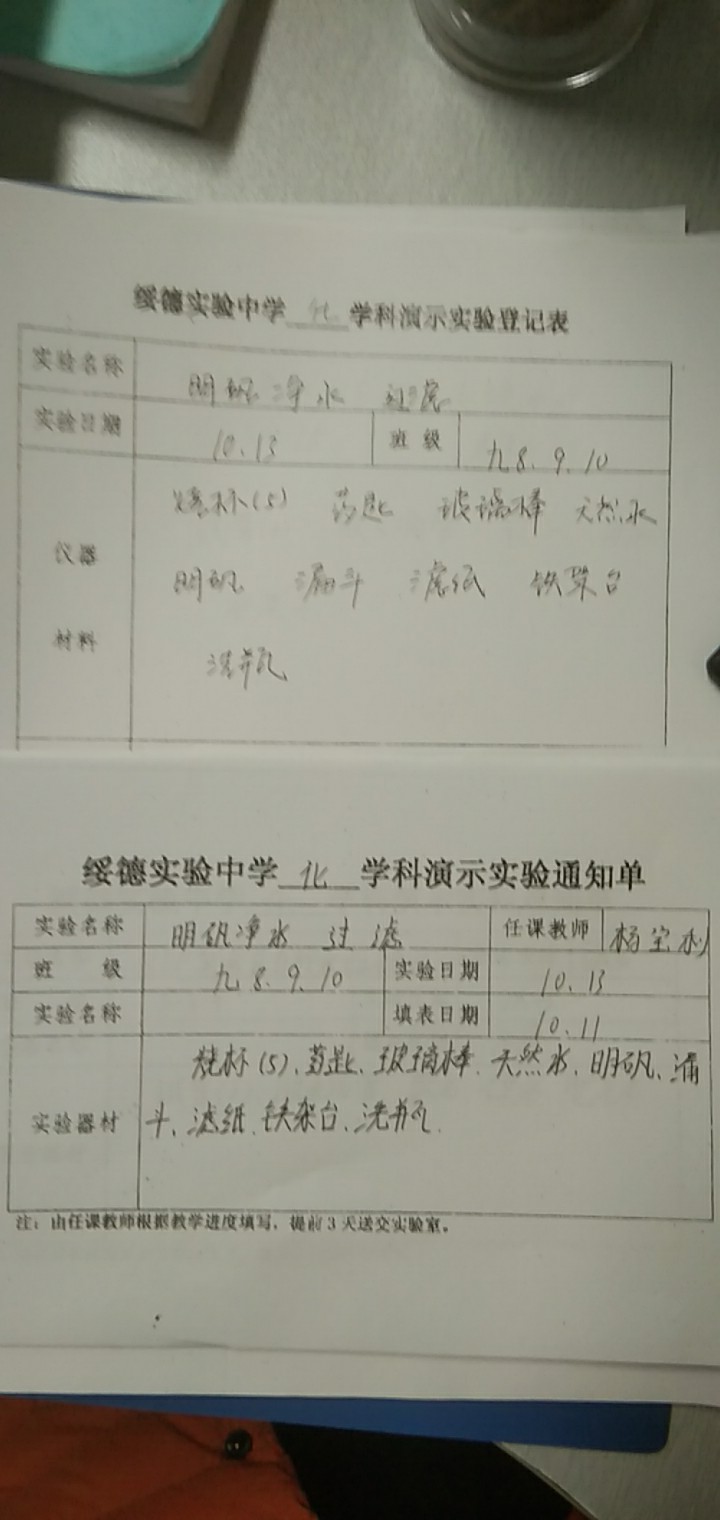 绥德实验中学 化 学科演示实验登记表
实验名称 明矾净水 过滤
实验日期 10.13 班级 九 8. 9. 10
烧杯(5) 药匙 玻璃棒 天然水
仪器 明矾 漏斗 滤纸 铁架台
材料 洗瓶
绥德实验中学 化 学科演示实验通知单
实验名称 明矾净水 过滤 任课教师 杨宝利
班级 九 8. 9. 10 实验日期 10.13
实验名称 填表日期 10.11
烧杯(5)、药匙、玻璃棒、天然水、明矾、漏
实验器材 斗、滤纸、铁架台、洗瓶.
注：由任课教师根据教学进度填写，提前3天送交实验室。